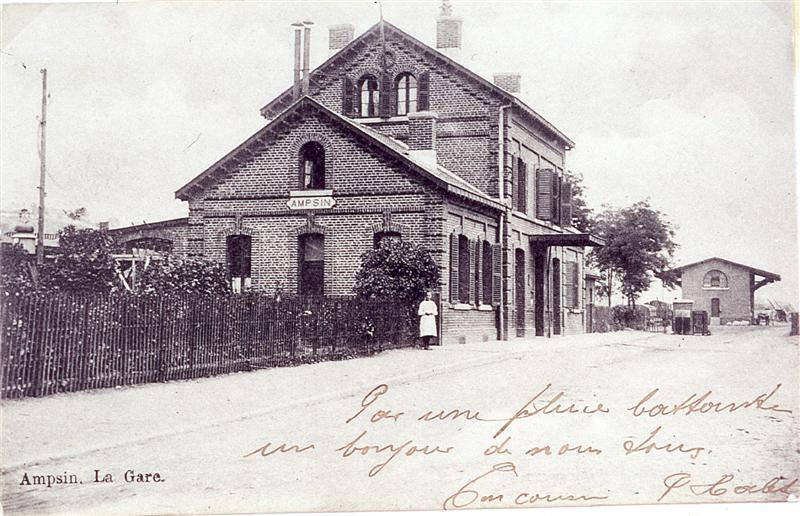 AMPSIN
Par une pluie battante
un bonjour de nous tous.
Ton cousin
Ampsin. La Gare.